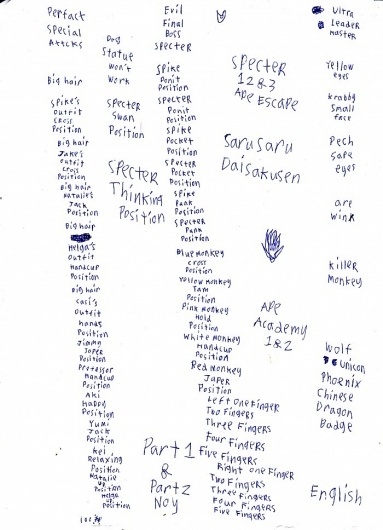 Perfact
Special
Attacks
Big hair
Spike's
Outfit
Cross
Position
Big hair
Jake's
Outfit
Cross
Position
Big hair
Natalie's
Jack
Position
Big hair
Helga's
Outfit
Handcup
Position
Big hair
Casi's
Outfit
hands
Position
Jimmy
Japer
Position
Professor
Handcup
Position
Aki
Happy
Position
Yumi
Jack
Position
Kei
Relaxing
Position
Natalie
up
Position
Helga
up
Position
Dog
Statue
won't
work
Specter
Swan
Position
Specter
Thinking
Position
Evil
Final
Boss
Specter
Spike
Ponit
Position
Specter
Ponit
Position
Spike
Pocket
Position
Specter
Pocket
Position
Spike
Punk
Position
Specter
Punk
Position
Blue Monkey
Cross
Position
Yellow Monkey
Tam
Position
Pink Monkey
Hold
Position
White Monkey
Handcup
Position
Red Monkey
Japer
Position
Left One Finger
Two Fingers
Three Fingers
Four Fingers
Five Fingers
Right One Finger
Two Fingers
Three Fingers
Four Fingers
Five Fingers
Part 1
&
Part 2
Noy
Specter
1 2 & 3
Ape Escape
Saru Saru
Daisakusen
Ape
Academy
1 & 2
Ultra
Leader
master
Yellow
eyes
krabby
Small
face
Pech
Sape
eyes
are
wink
killer
Monkey
Wolf
Unicon
Phoenix
Chinese
Dragon
Badge
English